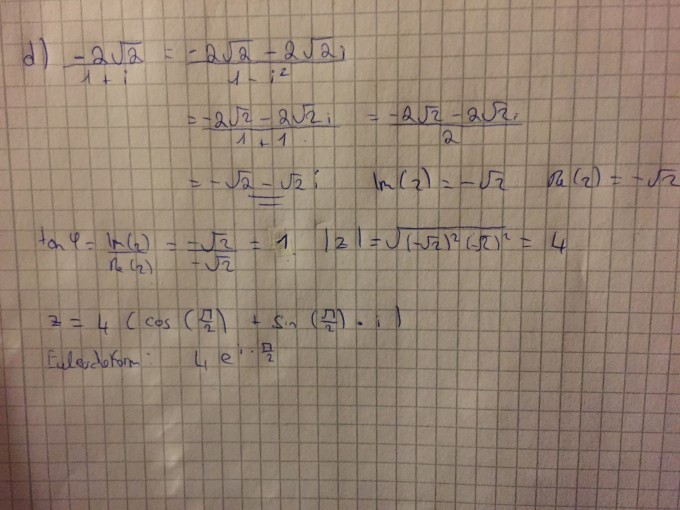 d) -2√2 / 1 + i = -2√2 - 2√2i / 1 - i²
= -2√2 - 2√2i / 1 + 1 = -2√2 - 2√2i / 2
= -√2 - √2 i Im(z) = -√2 Re(z) = -√2
tan φ = Im(z) / Re(z) = -√2 / -√2 = 1 |z| = √((-√2)² (-√2)²) = 4
z = 4 (cos (π/2) + sin (π/2) · i)
Eulersche Form: 4 e^(i · π/2)